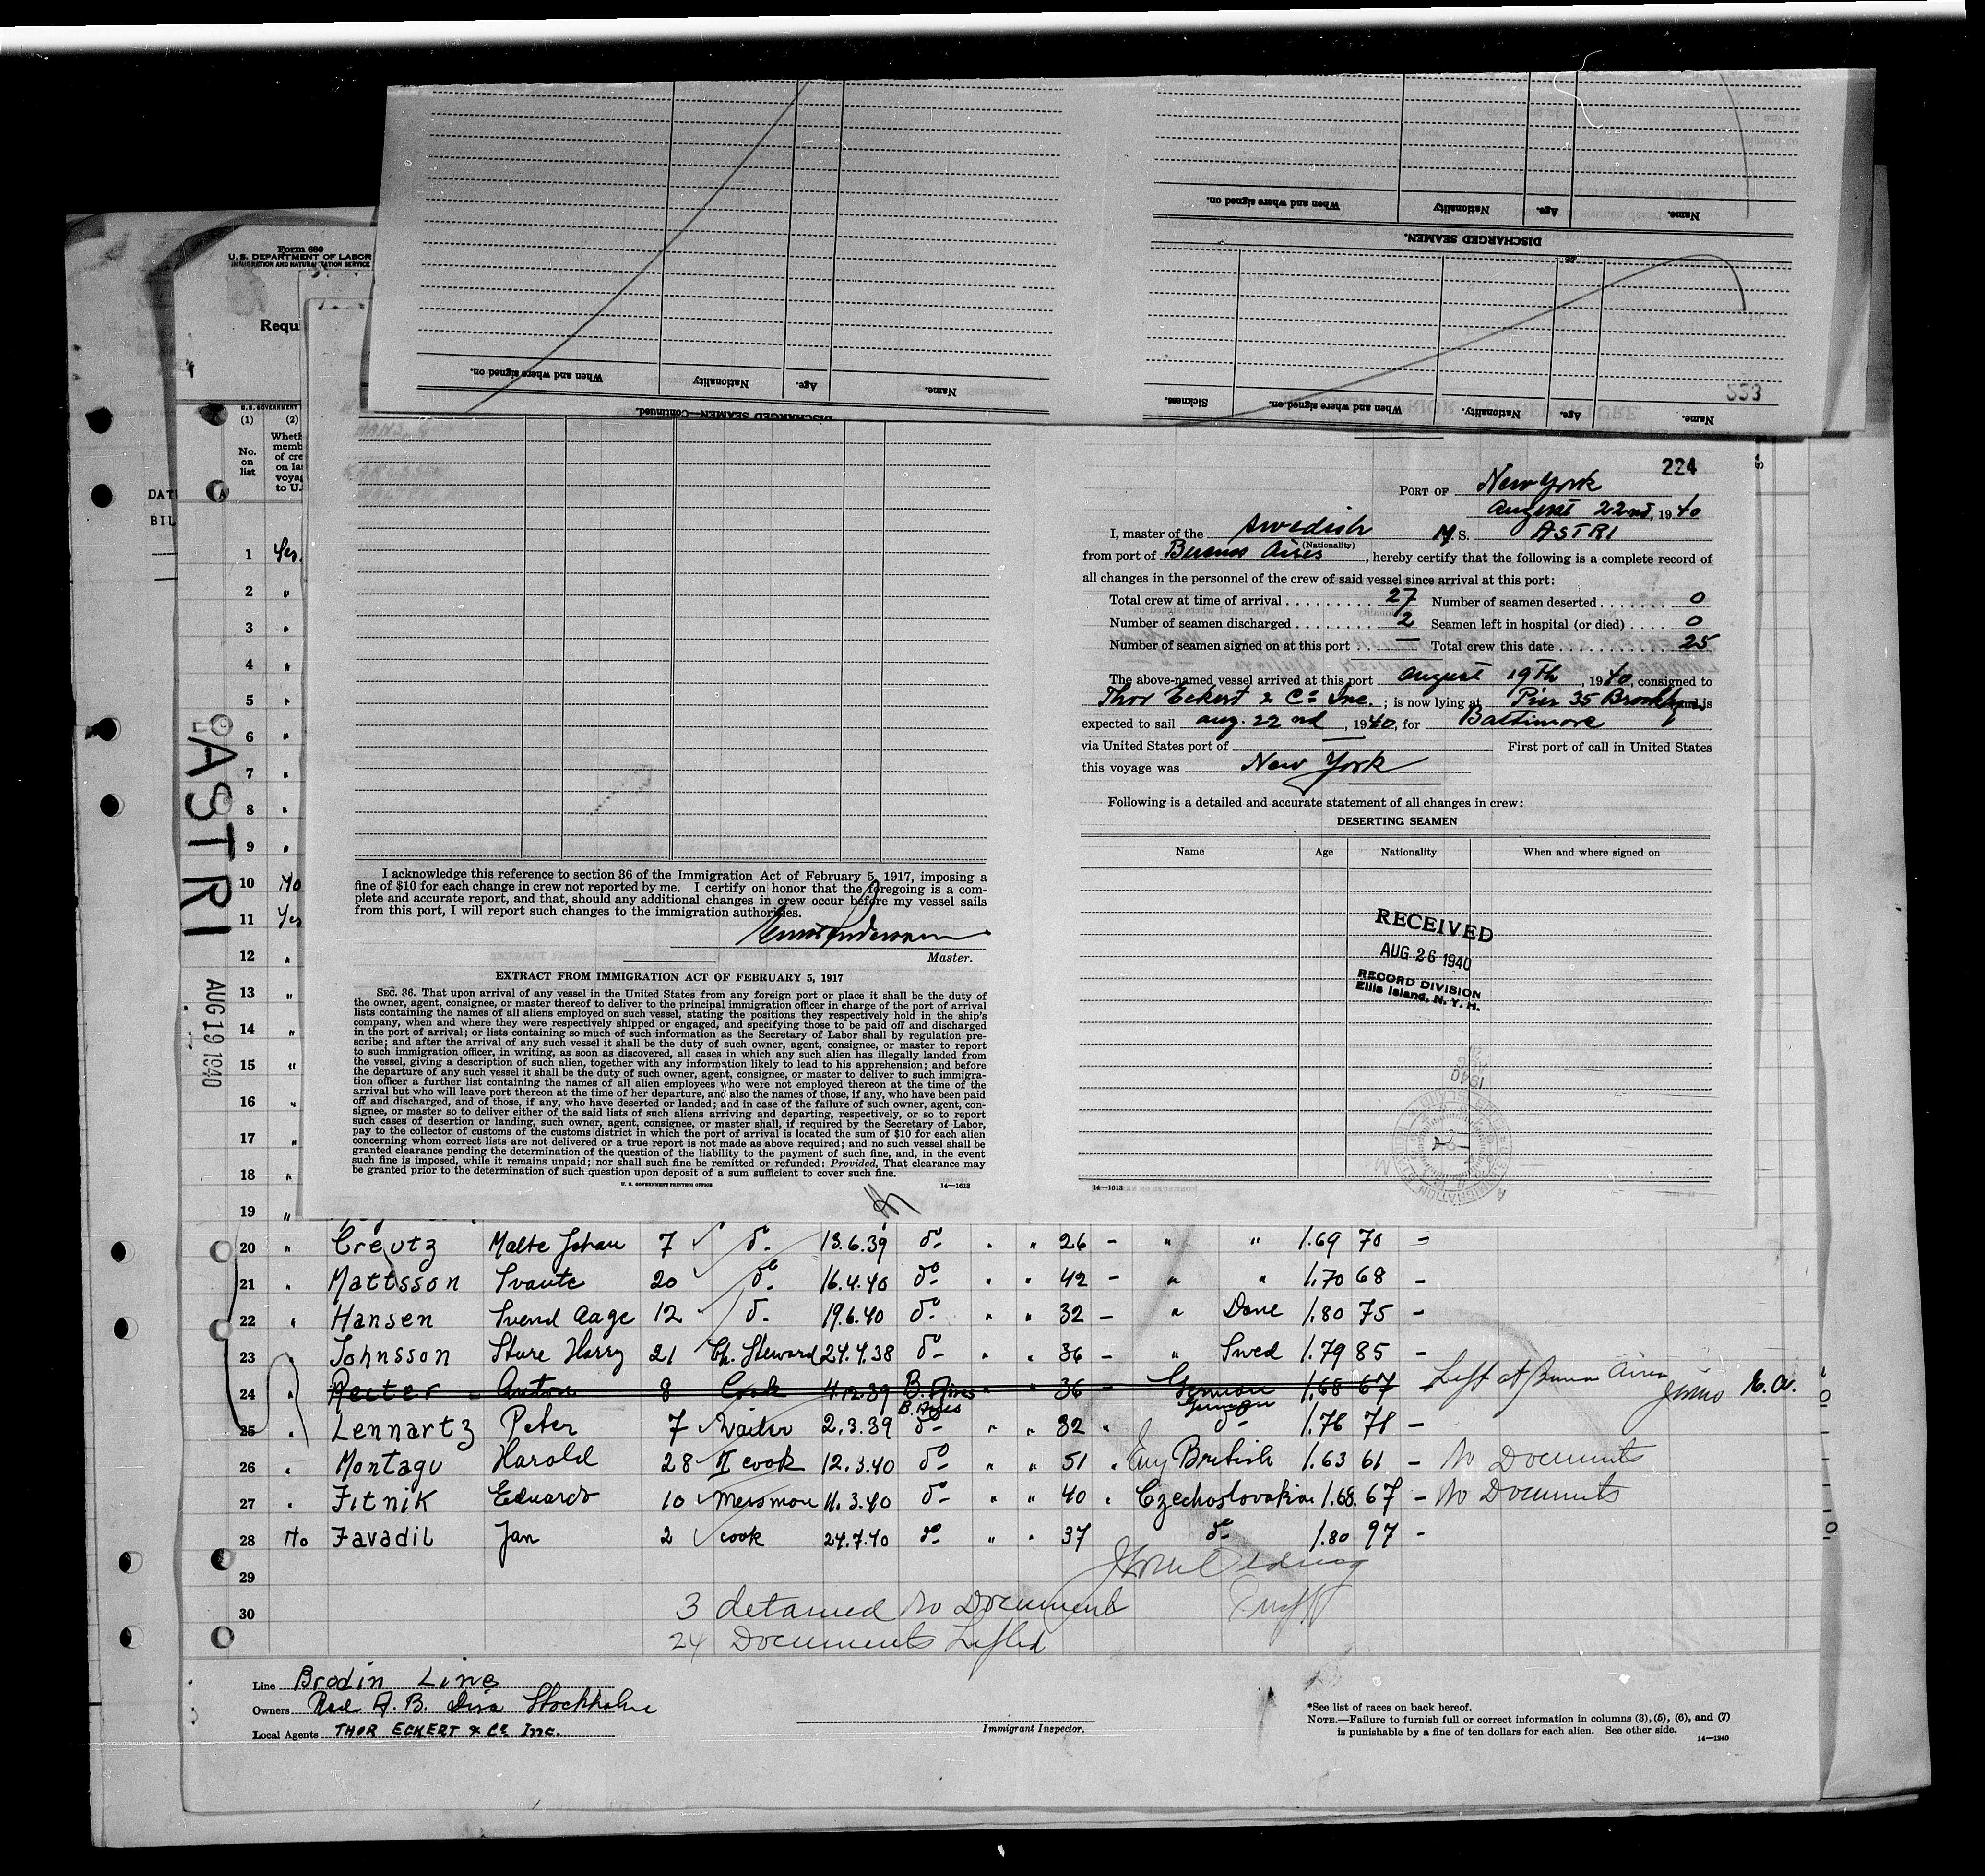 Name.
Age.
Nationality
When and where signed on.
DISCHARGED SEAMEN—Continued.
Name.
Age.
Nationality
When and where signed on.
DISCHARGED SEAMEN.
Name.
Age.
Nationality.
When and where signed on.
Sickness.
Form 680
U. S. DEPARTMENT OF LABOR
IMMIGRATION AND NATURALIZATION SERVICE
Requ
U.S. GOVERNMENT
(1) (2)
No. on list
Wheth
memb
of cre
on las
voyag
to U.
DAT
BIL
ASTRI
AUG 19 1940
1 Yes.
2 "
3 "
4 "
5 "
6 "
7 "
8 "
9 "
10 No
11 Yes
12 "
13 "
14 "
15 "
16 "
17 "
18 "
19 "
I acknowledge this reference to section 36 of the Immigration Act of February 5, 1917, imposing a
fine of $10 for each change in crew not reported by me. I certify on honor that the foregoing is a com-
plete and accurate report, and that, should any additional changes in crew occur before my vessel sails
from this port, I will report such changes to the immigration authorities.
Master.
EXTRACT FROM IMMIGRATION ACT OF FEBRUARY 5, 1917
SEC. 36. That upon arrival of any vessel in the United States from any foreign port or place it shall be the duty of
the owner, agent, consignee, or master thereof to deliver to the principal immigration officer in charge of the port of arrival
lists containing the names of all aliens employed on such vessel, stating the positions they respectively hold in the ship's
company, when and where they were respectively shipped or engaged, and specifying those to be paid off and discharged
in the port of arrival; or lists containing so much of such information as the Secretary of Labor shall by regulation pre-
scribe; and after the arrival of any such vessel it shall be the duty of such owner, agent, consignee, or master to report
to such immigration officer, in writing, as soon as discovered, all cases in which any such alien has illegally landed from
the vessel, giving a description of such alien, together with any information likely to lead to his apprehension; and before
the departure of any such vessel it shall be the duty of such owner, agent, consignee, or master to deliver to such immigra-
tion officer a further list containing the names of all alien employees who were not employed thereon at the time of the
arrival but who will leave port thereon at the time of her departure, and also the names of those, if any, who have been paid
off and discharged, and of those, if any, who have deserted or landed; and in case of the failure of such owner, agent, con-
signee, or master so to deliver either of the said lists of such aliens arriving and departing, respectively, or so to report
such cases of desertion or landing, such owner, agent, consignee, or master shall, if required by the Secretary of Labor,
pay to the collector of customs of the customs district in which the port of arrival is located the sum of $10 for each alien
concerning whom correct lists are not delivered or a true report is not made as above required; and no such vessel shall be
granted clearance pending the determination of the question of the liability to the payment of such fine, and, in the event
such fine is imposed, while it remains unpaid; nor shall such fine be remitted or refunded: Provided, That clearance may
be granted prior to the determination of such question upon deposit of a sum sufficient to cover such fine.
U. S. GOVERNMENT PRINTING OFFICE 14—1613
224
PORT OF New York
August 22nd, 1940
I, master of the Swedish M. S. ASTRI
(Nationality)
from port of Buenos Aires, hereby certify that the following is a complete record of
all changes in the personnel of the crew of said vessel since arrival at this port:
Total crew at time of arrival 27 Number of seamen deserted 0
Number of seamen discharged 2 Seamen left in hospital (or died) 0
Number of seamen signed on at this port — Total crew this date 25
The above-named vessel arrived at this port August 19th, 1940, consigned to
Thor Eckert & Co Inc.; is now lying at Pier 35 Brooklyn and is
expected to sail Aug. 22nd, 1940, for Baltimore
via United States port of — First port of call in United States
this voyage was New York
Following is a detailed and accurate statement of all changes in crew:
DESERTING SEAMEN
Name Age Nationality When and where signed on
RECEIVED
AUG 26 1940
RECORD DIVISION
Ellis Island, N. Y. H.
14—1613
20 " Creutz Malte Johan 7 do. 13.6.39 do " " 26 - " " 1.69 70 -
21 " Mattsson Svante 20 do 16.4.40 do " " 42 - " " 1.70 68 -
22 " Hansen Svend Aage 12 do. 19.6.40 do " " 32 - " Dane 1.80 75 -
23 " Johnsson Sture Harry 21 Ch. Steward 24.4.38 do " " 36 - " Swed 1.79 85 -
24 " Reiter Anton 8 Cook 4.12.39 B. Aires " " 36 - German 1.68 67 - Left at Buenos Aires
25 " Lennartz Peter 7 Waiter 2.3.39 B. Aires do " " 32 " German do 1.76 78 -
26 " Montagu Harold 28 II cook 12.3.40 do " " 51 " Eng British 1.63 61 - No Documents
27 " Fitnik Eduardo 10 Messman 11.3.40 do " " 40 " Czechoslovakian 1.68 67 - No Documents
28 No Favadil Jan 2 cook 24.7.40 do " " 37 do 1.80 97 -
29
30
3 detained No Documents
24 Documents Lifted
Line Brodin Line
Owners Red. A. B. Disa Stockholm
Local Agents THOR ECKERT & Co Inc.
Immigrant Inspector.
*See list of races on back hereof.
NOTE.—Failure to furnish full or correct information in columns (3), (5), (6), and (7)
is punishable by a fine of ten dollars for each alien. See other side.
14—1240